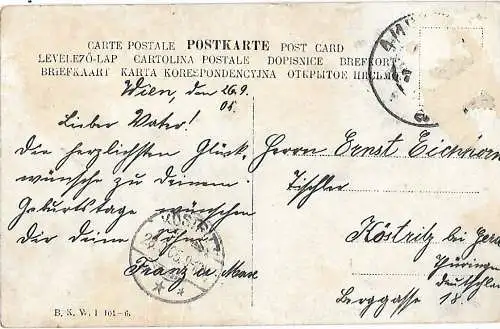 CARTE POSTALE POSTKARTE POST CARD
LEVELEZŐ-LAP CARTOLINA POSTALE DOPISNICE BREFKORT
BRIEFKAART KARTA KORESPONDENCYJNA ОТКРЫТОЕ ПИСЬМО
Wien, den 26.9.
05.
Lieber Vater!
Die herzlichsten Glück-
wünsche zu deinem
Geburtstage wünschen
dir deine Söhne
Franz u. Max
Herrn Ernst Eichhorn
Tischler
Köstritz bei Gera
Thüringen
Deutschland
Berggasse 18.
KÖSTRITZ
B. K. W. I 101-6.